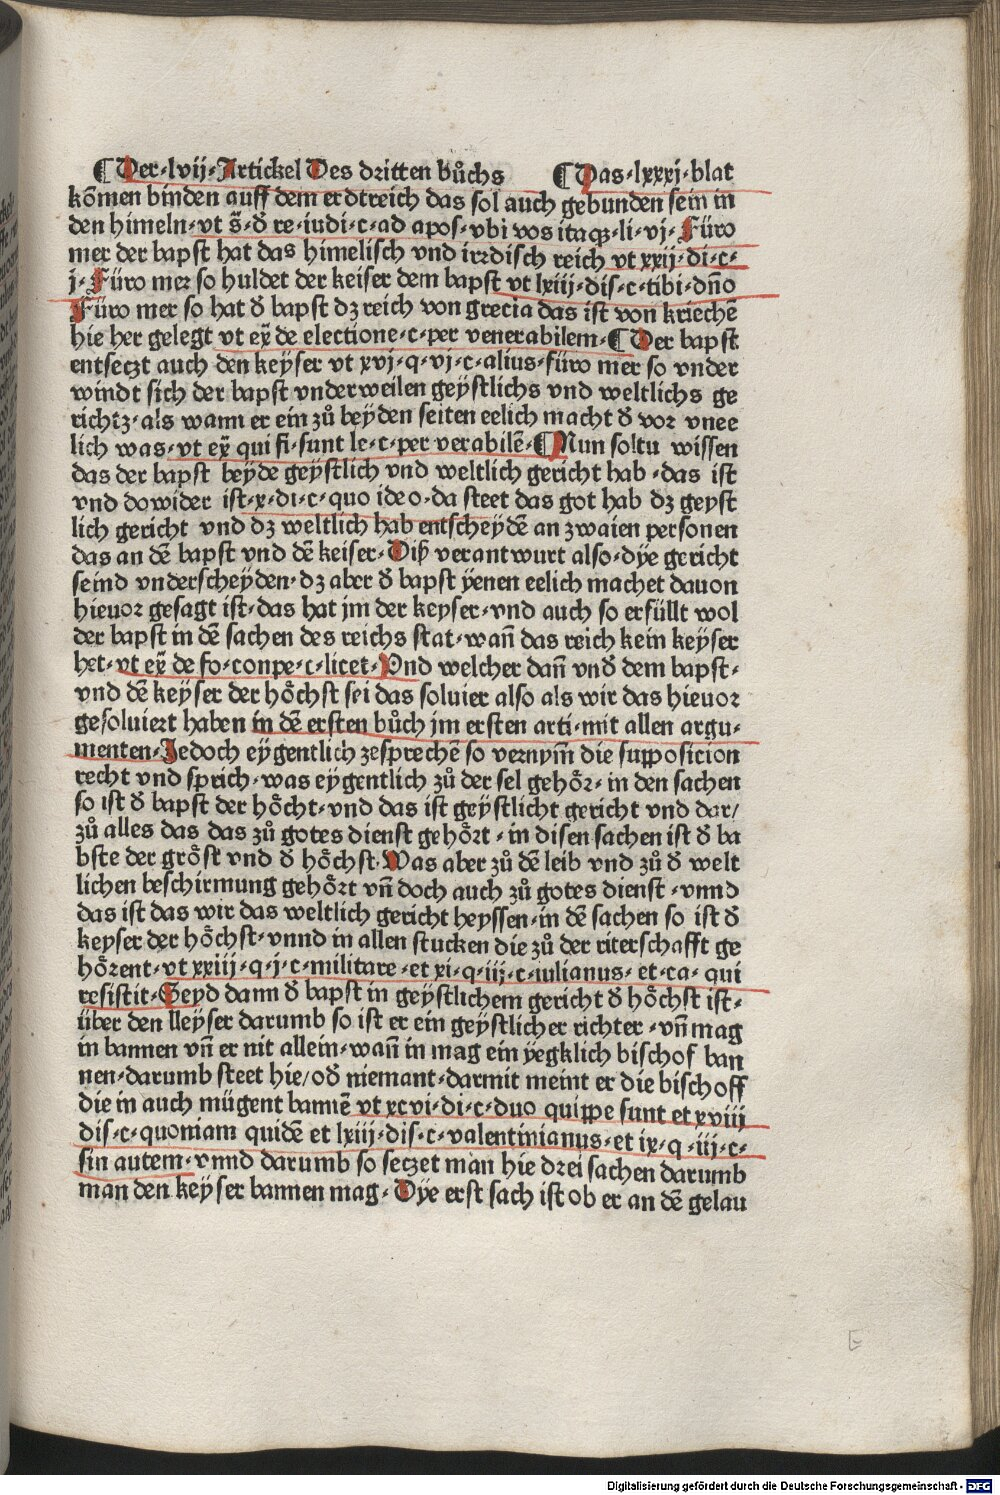 ¶ Der·lvij·Artickel Des dritten bůchs ¶ Das·lxxxj·blat
kõmen binden auff dem erdtreich das sol auch gebunden sein in
den himeln·vt s̃·đ re·iudi·c·ad apos·vbi vos itaqꝫ·li·vj·Füro
mer der bapst hat das himelisch vnd irꝛdisch reich vt xxij·di·c·
j·Füro meꝛ so huldet der keiser dem bapst vt lxiij·dis·c·tibi·dño
Füro mer so hat đ bapst dz reich von grecia das ist von kriechẽ
hie her gelegt vt eẙ de electione·c·per venerabilem·¶ Der bapst
entseczt auch den keyser vt xvj·q·vj·c·alius·füro mer so vnder
windt sich der bapst vnderweilen geÿstlichs vnd weltlichs ge
richtz·als wann er ein zů beÿden seiten eelich macht đ vor vnee
lich was·vt eẙ qui fi·sunt le·c·per verabilẽ·¶ Nun soltu wissen
das der bapst beÿde geÿstlich vnd weltlich gericht hab·das ist
vnd dowider ist·x·di·c·quo ideo·da steet das got hab dz geyst
lich gericht vnd dz weltlich hab entscheÿdẽ an zwaien personen
das an dẽ bapst vnd dẽ keiser·Diß verantwurt also·dÿe gericht
seind vnderscheÿden·dz aber đ bapst ÿenen eelich machet dauon
hieuoꝛ gesagt ist·das hat jm der keyser·vnd auch so erfüllt wol
der bapst in dẽ sachen des reichs stat·wañ das reich kein keÿser
het·vt eẙ de fo·conpe·c·licet·Vnd welcher dañ vnđ dem bapst·
vnd dẽ keÿser der hoͤchst sei das soluier also als wir das hieuoꝛ
gesoluieꝛt haben in dẽ ersten bůch jm ersten arti·mit allen argu·
menten·Jedoch eÿgentlich zesprechẽ so vernym̃ die supposicion
recht vnd sprich·was eÿgentlich zů der sel gehoͤꝛ·in den sachen
so ist đ bapst der hoͤcht·vnd das ist geÿstlicht gericht vnd dar/
zů alles das das zů gotes dienst gehoͤꝛt·in disen sachen ist đ ba
bste der groͤst vnd đ hoͤchst·Was aber zů dẽ leib vnd zů đ welt
lichen beschirmung gehoͤꝛt vñ doch auch zů gotes dienst·vnnd
das ist das wir das weltlich gericht heyssen·in dẽ sachen so ist đ
keyser der hoͤchst·vnnd in allen stucken die zů der riterschafft ge
hoͤꝛent·vt xxiij·q·j·c·militare·et xi·q·iij·c·iulianus·et·ca·qui
resistit·Seyd dann đ bapst in geÿstlichem gericht đ hoͤchst ist·
über den lleÿser darumb so ist er ein geÿstlicher richter·vñ mag
in bannen vñ er nit allein·wañ in mag ein ÿegklich bischof ban
nen·darumb steet hie/ođ niemant·darmit meint er die bischoff
die in auch mügent bannẽ vt xcvi·di·c·duo quippe sunt et xviij
dis·c·quoniam quidẽ et lxiij·dis·c·valentinianus·et ix·q·iij·c·
sin autem·vnnd darumb so seczet man hie drei sachen darumb
man den keÿser bannen mag·Dÿe erst sach ist ob er an dẽ gelau
E
Digitalisierung gefördert durch die Deutsche Forschungsgemeinschaft · DFG